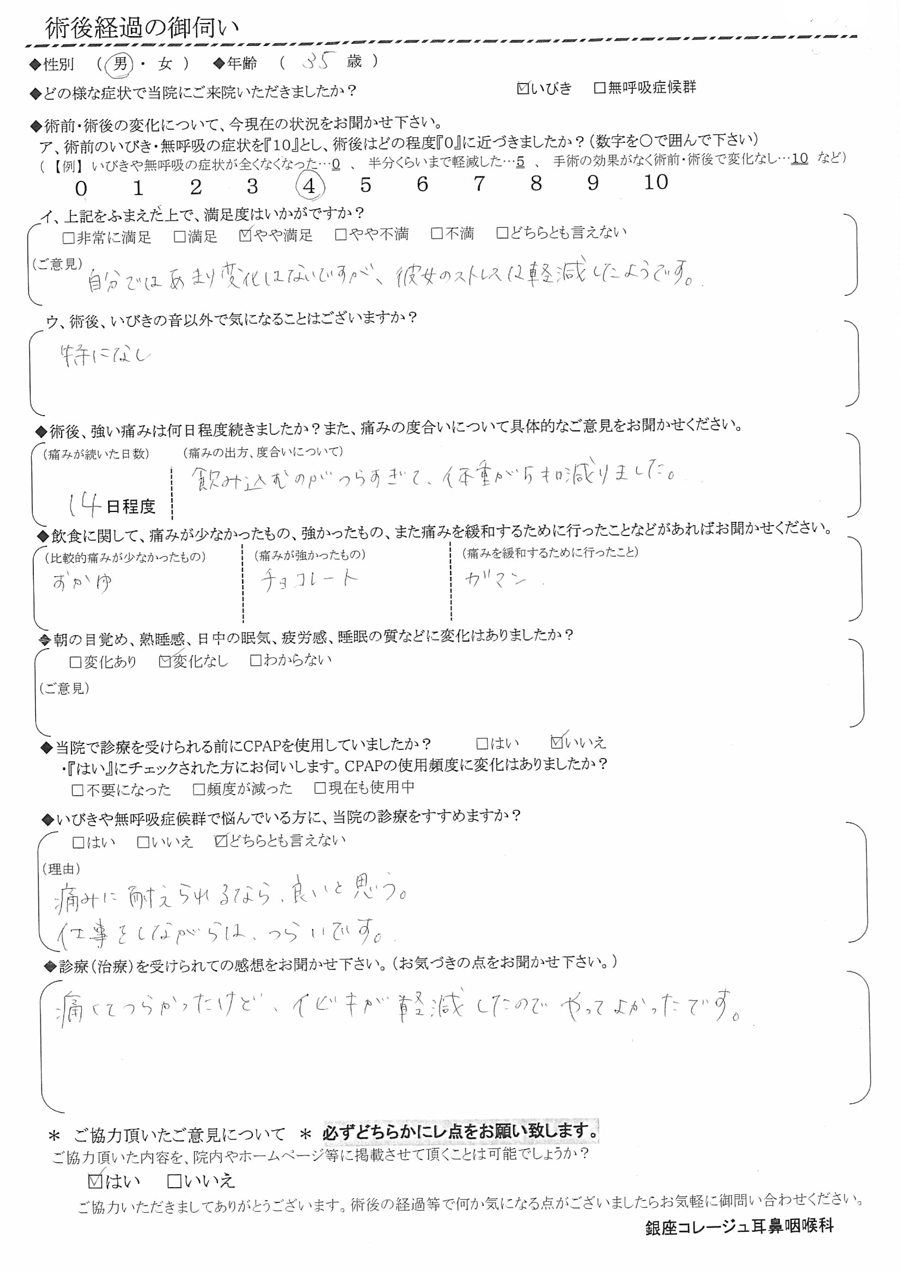 術後経過の御伺い
◆性別 （ 男 ・ 女 ） ◆年齢 （ 35 歳 ）
◆どの様な症状で当院にご来院いただきましたか？ ☑いびき □無呼吸症候群
◆術前・術後の変化について、今現在の状況をお聞かせ下さい。
ア、術前のいびき・無呼吸の症状を『10』とし、術後はどの程度『0』に近づきましたか？（数字を○で囲んで下さい）
（ 【例】 いびきや無呼吸の症状が全くなくなった…0 、 半分くらいまで軽減した…5 、 手術の効果がなく術前・術後で変化なし…10 など）
0 1 2 3 4 5 6 7 8 9 10
イ、上記をふまえた上で、満足度はいかがですか？
□非常に満足 □満足 ☑やや満足 □やや不満 □不満 □どちらとも言えない
（ご意見）
自分ではあまり変化はないですが、彼女のストレスは軽減したようです。
ウ、術後、いびきの音以外で気になることはございますか？
特になし
◆術後、強い痛みは何日程度続きましたか？また、痛みの度合いについて具体的なご意見をお聞かせください。
（痛みが続いた日数） （痛みの出方、度合いについて）
飲み込むのがつらすぎて、体重が5キロ減りました。
14日程度
◆飲食に関して、痛みが少なかったもの、強かったもの、また痛みを緩和するために行ったことなどがあればお聞かせください。
（比較的痛みが少なかったもの） （痛みが強かったもの） （痛みを緩和するために行ったこと）
おかゆ チョコレート ガマン
◆朝の目覚め、熟睡感、日中の眠気、疲労感、睡眠の質などに変化はありましたか？
□変化あり ☑変化なし □わからない
（ご意見）
◆当院で診療を受けられる前にCPAPを使用していましたか？ □はい ☑いいえ
・『はい』にチェックされた方にお伺いします。CPAPの使用頻度に変化はありましたか？
□不要になった □頻度が減った □現在も使用中
◆いびきや無呼吸症候群で悩んでいる方に、当院の診療をすすめますか？
□はい □いいえ ☑どちらとも言えない
（理由）
痛みに耐えられるなら、良いと思う。
仕事をしながらは、つらいです。
◆診療（治療）を受けられての感想をお聞かせ下さい。（お気づきの点をお聞かせ下さい。）
痛くてつらかったけど、イビキが軽減したのでやってよかったです。
＊ ご協力頂いたご意見について ＊ 必ずどちらかにレ点をお願い致します。
ご協力頂いた内容を、院内やホームページ等に掲載させて頂くことは可能でしょうか？
☑はい □いいえ
ご協力いただきましてありがとうございます。術後の経過等で何か気になる点がございましたらお気軽に御問い合わせください。
銀座コレージュ耳鼻咽喉科